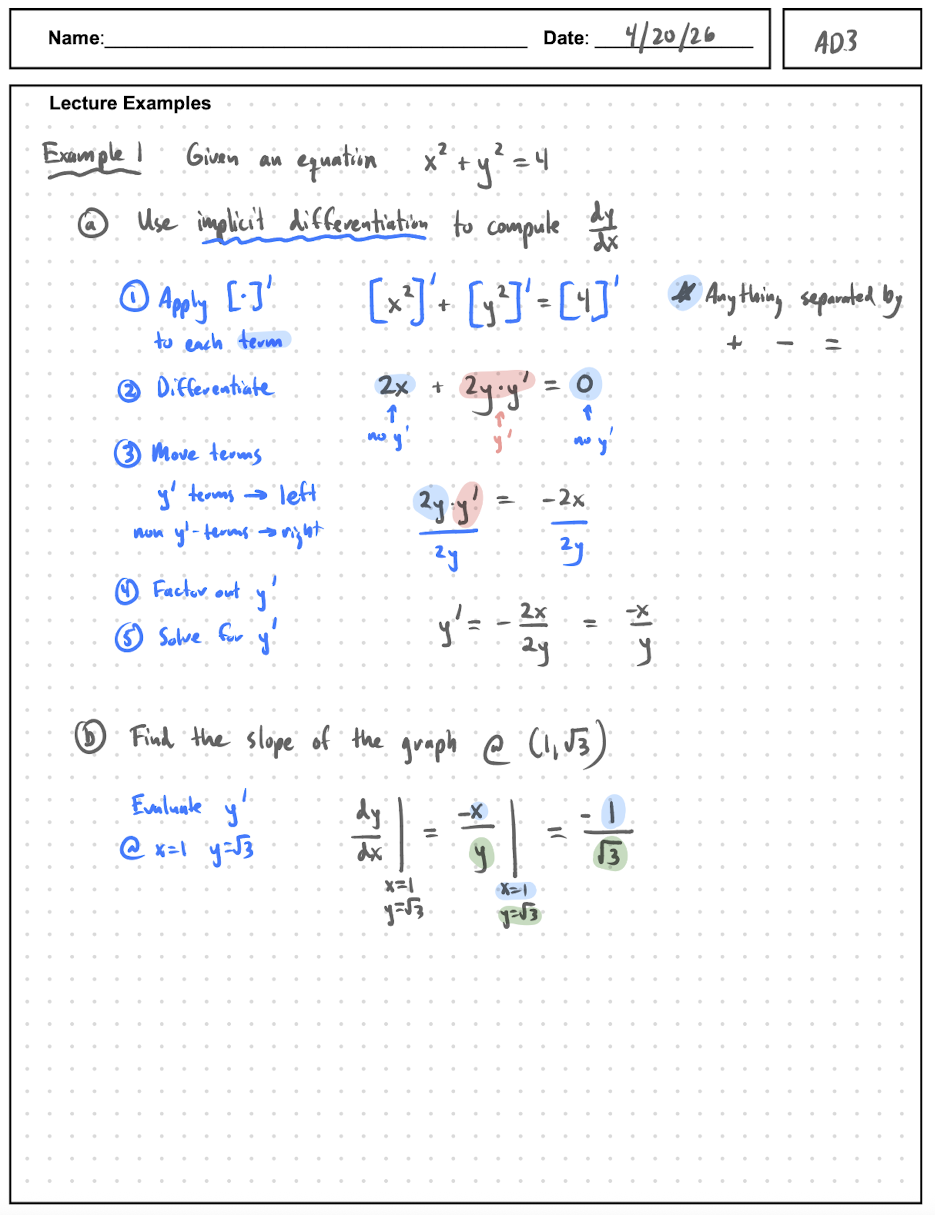 Name: Date: 4/20/26 AD3
Lecture Examples
Example 1 Given an equation x² + y² = 4
ⓐ Use implicit differentiation to compute dy/dx
① Apply [·]' [x²]' + [y²]' = [4]' * Anything separated by
to each term + − =
② Differentiate 2x + 2y·y' = 0
↑ ↑ ↑
no y' y' no y'
③ Move terms
y' terms → left 2y·y' = -2x
non y'-terms → right 2y 2y
④ Factor out y'
⑤ Solve for y' y' = - 2x/2y = -x/y
ⓑ Find the slope of the graph @ (1,√3)
Evaluate y' dy/dx | = -x/y | = - 1/√3
@ x=1 y=√3
x=1 x=1
y=√3 y=√3